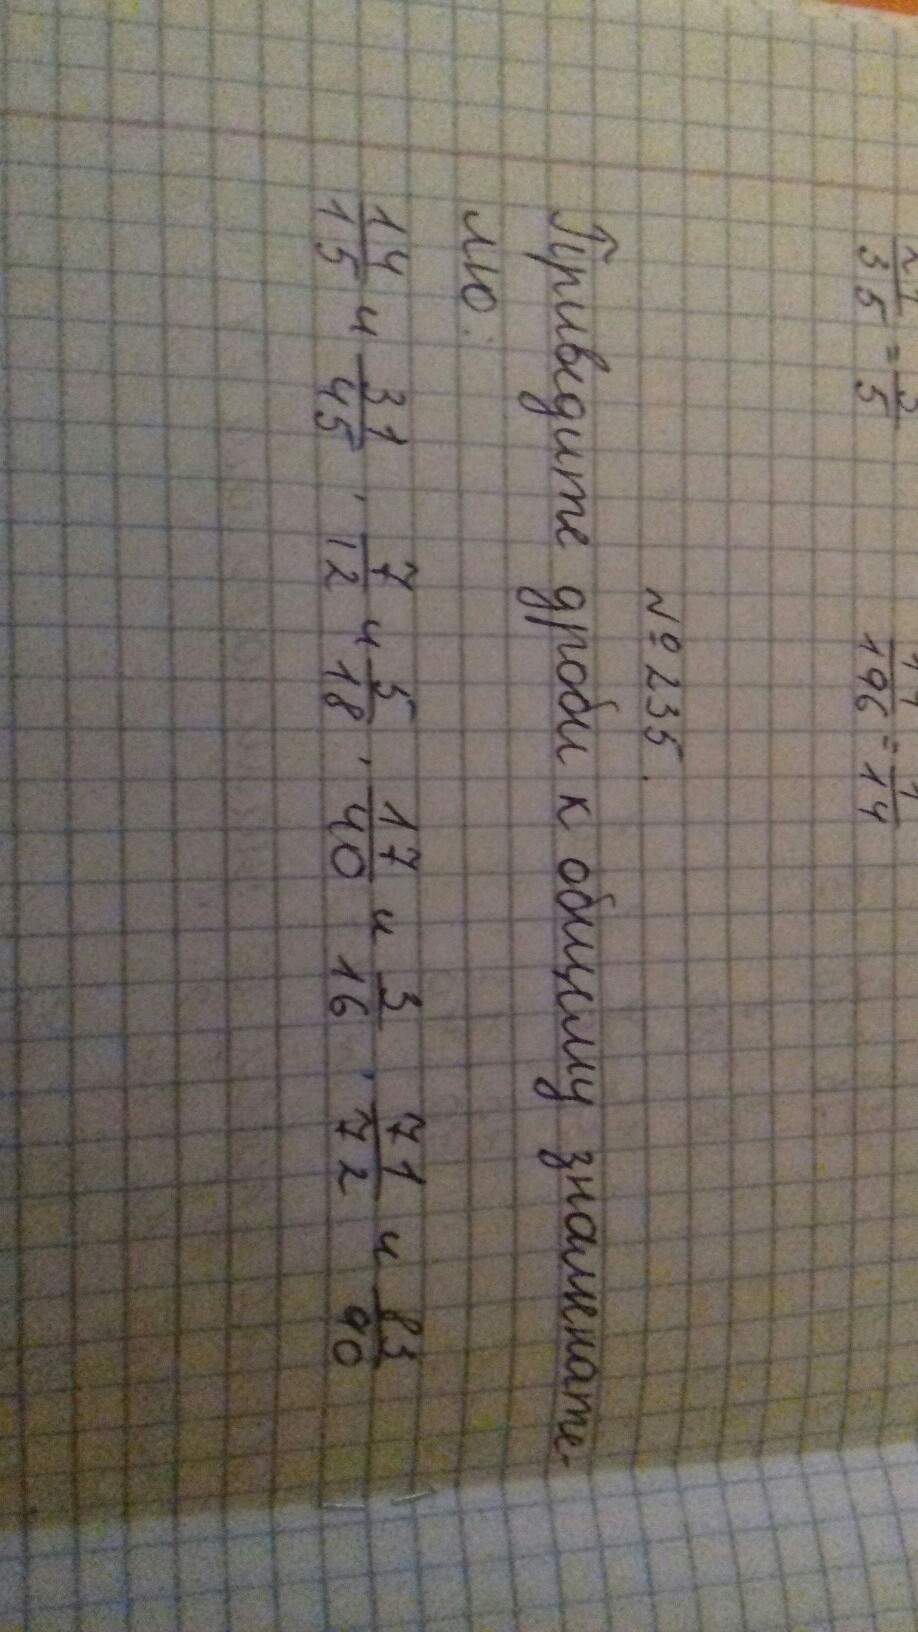 35 = 5
196 = 14
№ 235.
Приведите дроби к общему знаменате-
лю:
14/15 и 31/45, 7/12 и 5/18, 17/40 и 3/16, 71/72 и 83/90